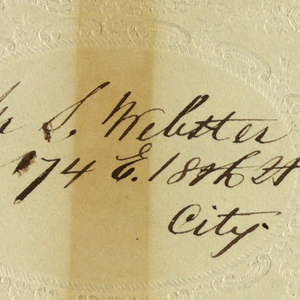 S. Webster
174 E. 18th St
City.